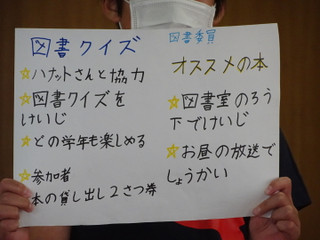 図書クイズ
☆ハナットさんと協力
☆図書クイズを
けいじ
☆どの学年も楽しめる
☆参加者
本の貸し出し2さつ券
図書委員
オススメの本
☆図書室のろう
下でけいじ
☆お昼の放送で
しょうかい